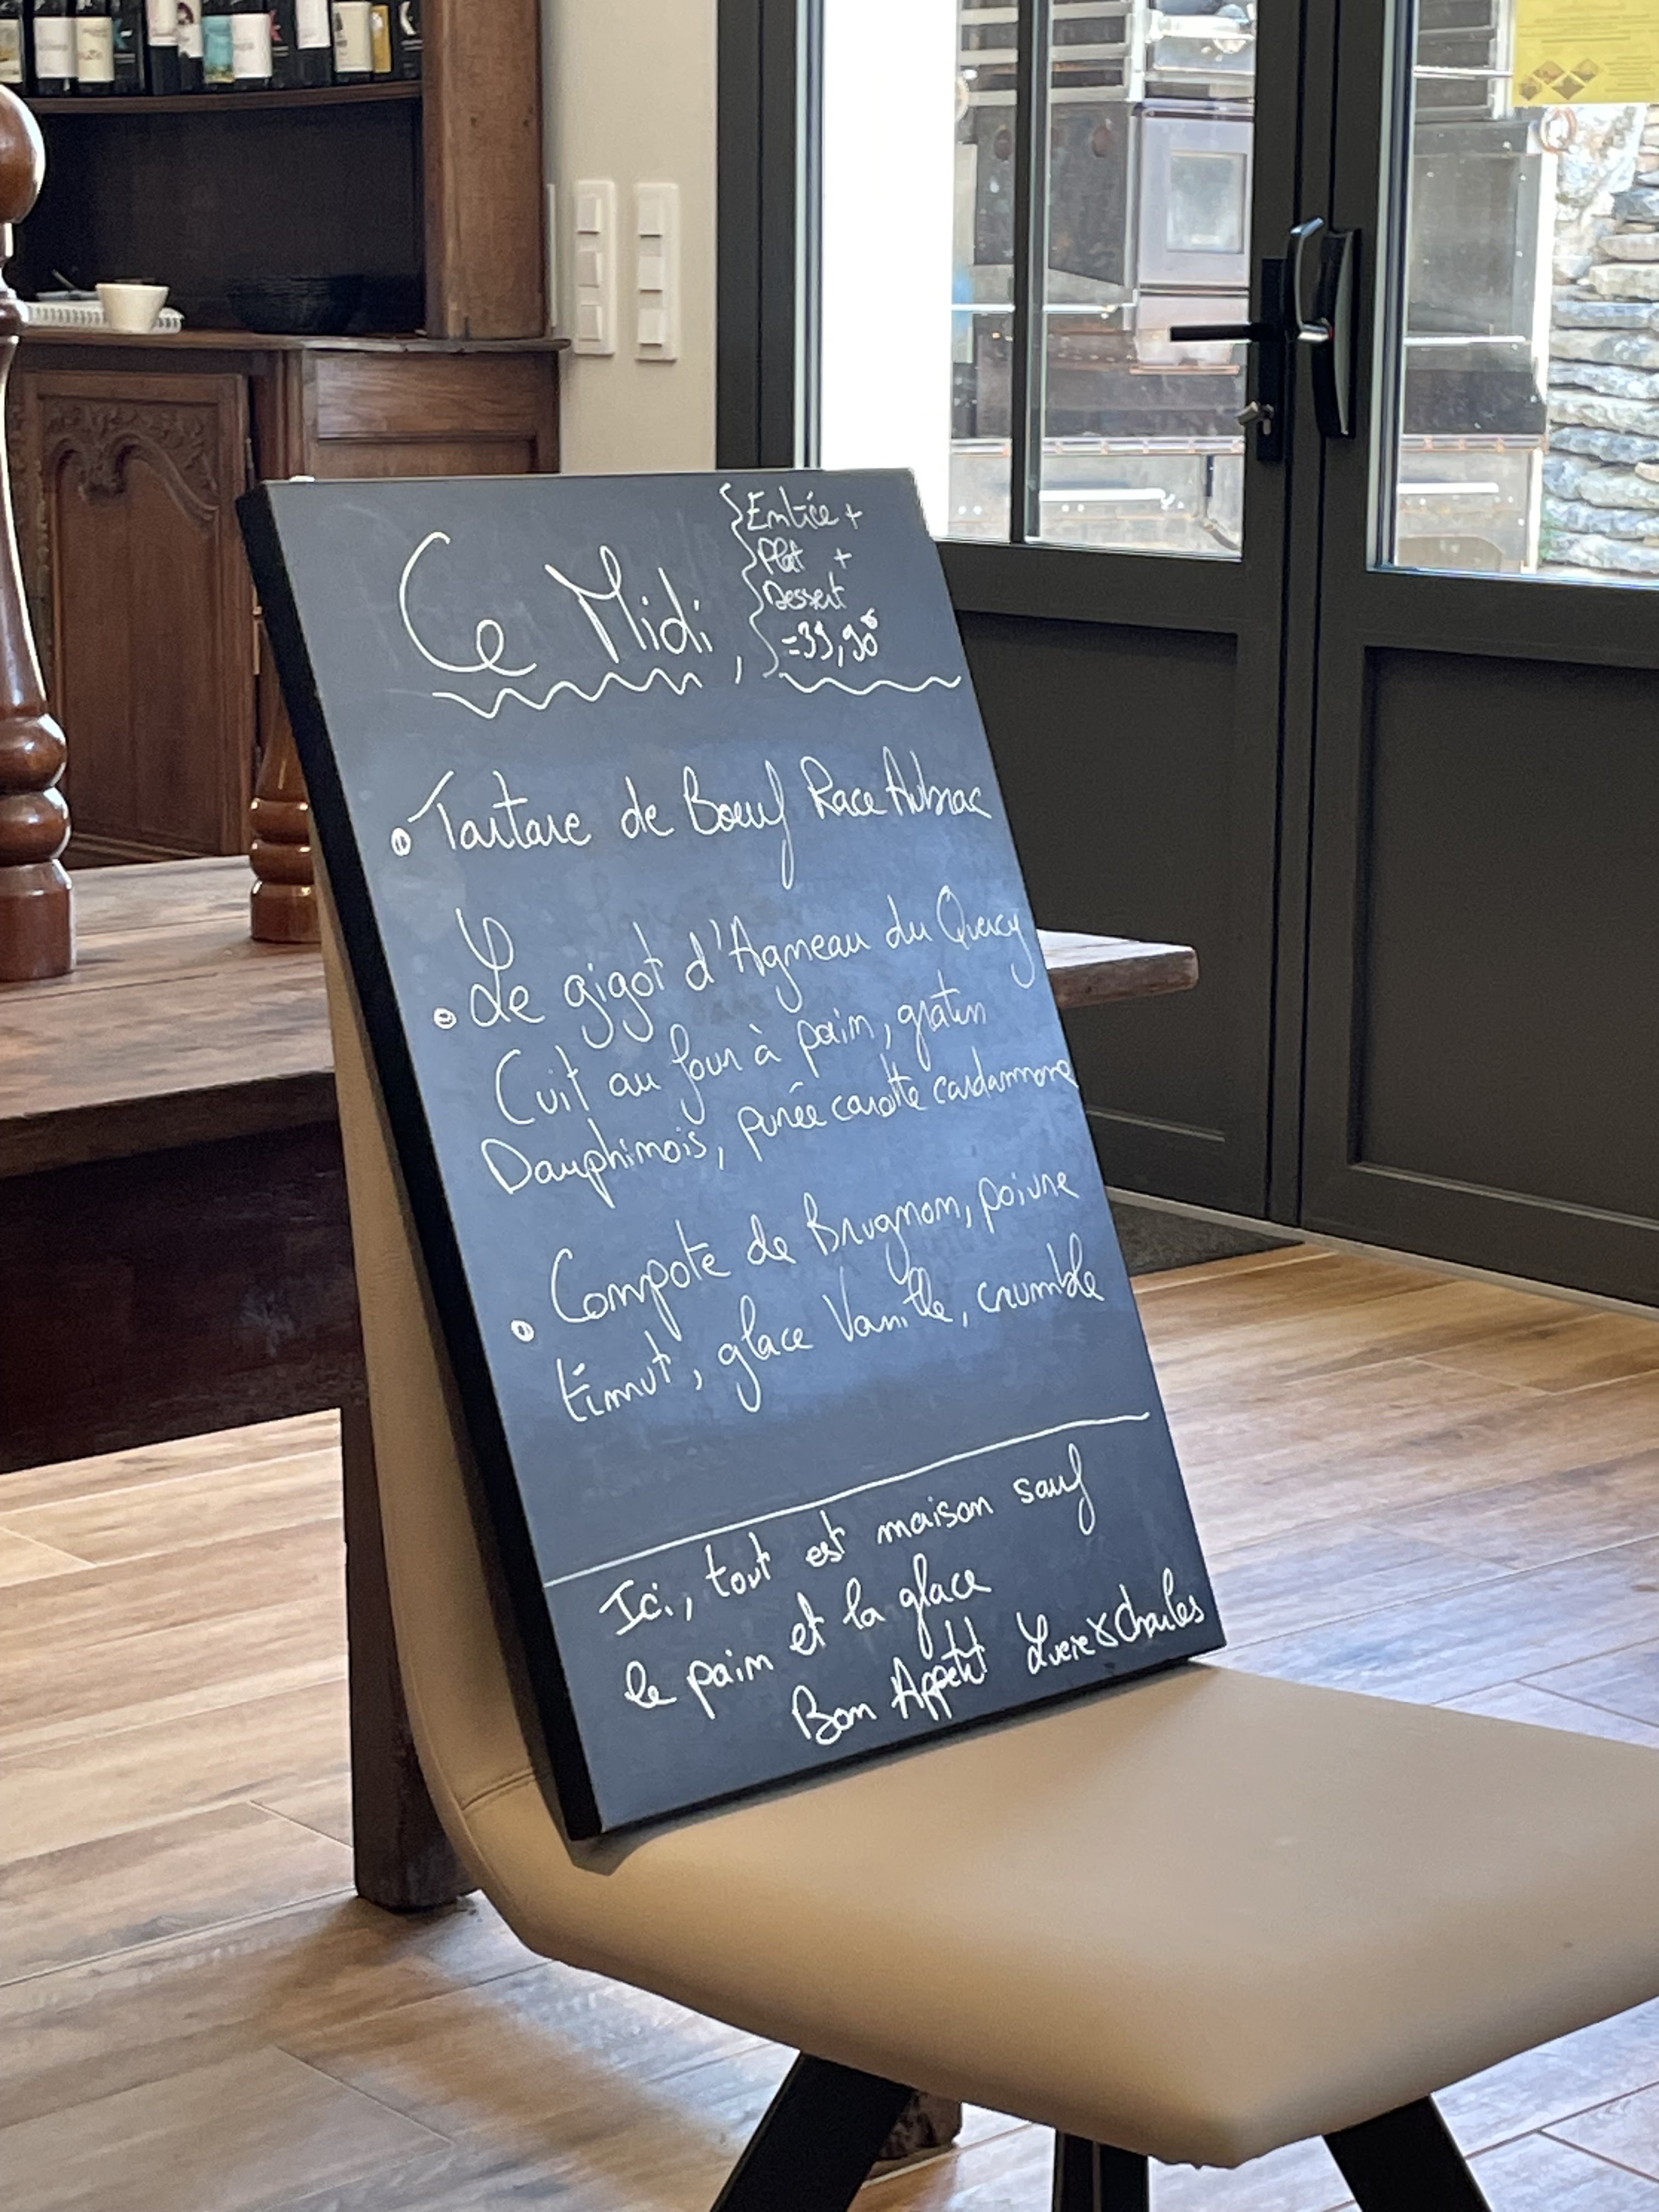 Ce Midi,
Entrée +
Plat +
Dessert
=39,90€
• Tartare de Boeuf Race Aubrac
• Le gigot d'Agneau du Quercy
Cuit au four à pain, gratin
Dauphinois, purée carotte cardamome
• Compote de Brugnon, poivre
timut, glace Vanille, crumble
Ici, tout est maison sauf
le pain et la glace
Bon Appétit Lucie & Charles